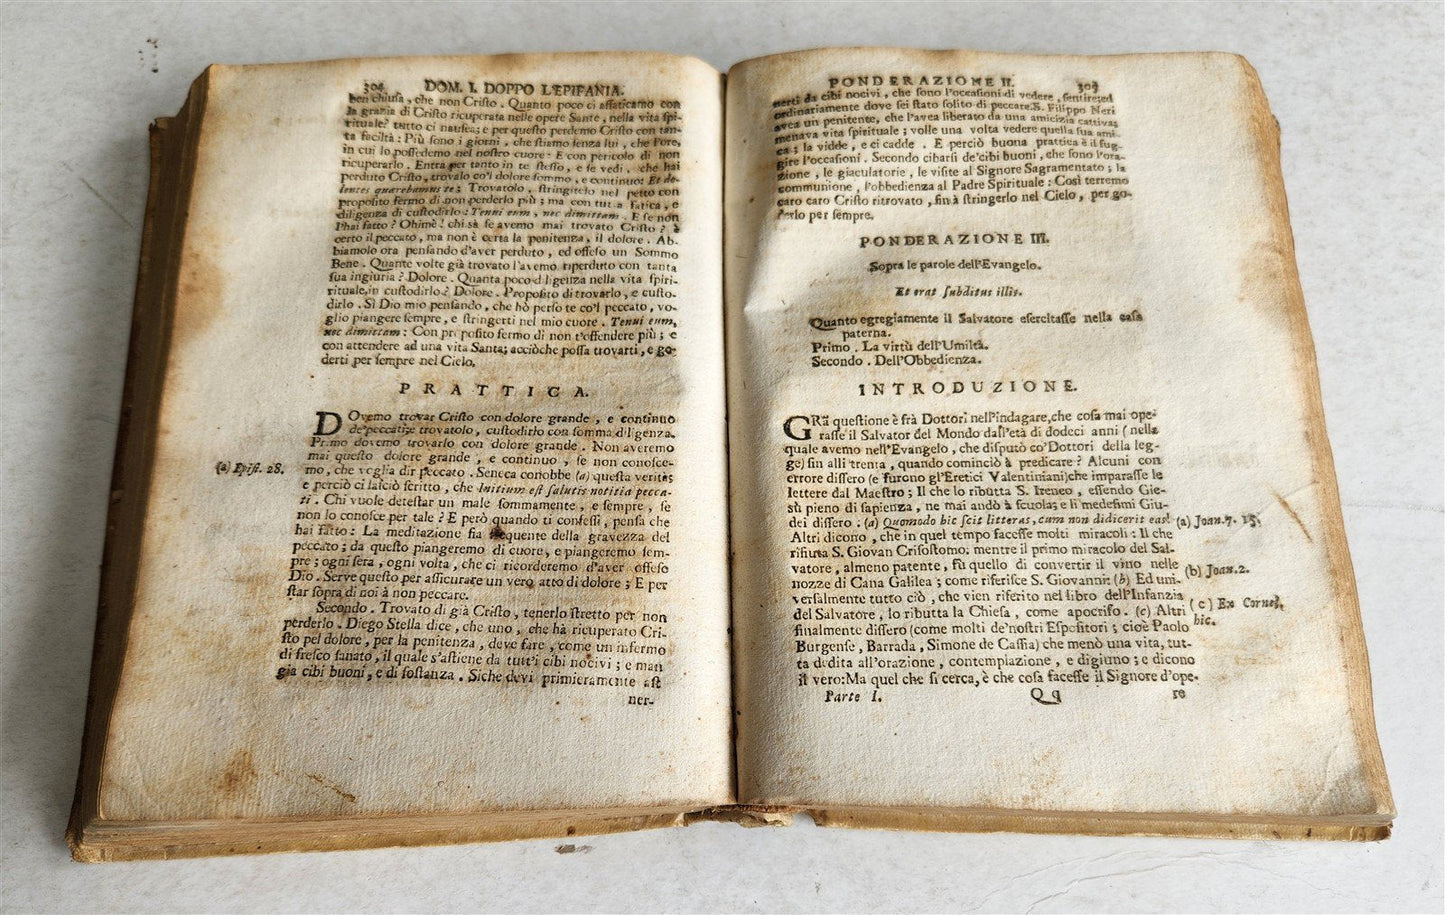 304 DOM. I. DOPPO L'EPIFANIA.
ben chiusa, che non Cristo. Quanto poco ci affaticamo con
la grazia di Cristo ricuperata nelle opere Sante, nella vita spi-
rituale? tutto ci nausea; e per questo perdemo Cristo con tan-
ta faciltà: Più sono i giorni, che stiamo senza lui, che l'ore,
in cui lo possedemo nel nostro cuore: E con pericolo di non
ricuperarlo. Entra per tanto in te stesso, e se vedi, che hai
perduto Cristo, trovalo co'l dolore sommo, e continuo: Et do-
lentes quærebamus te; Trovatolo, stringitelo nel petto con
proposito fermo di non perderlo più; ma con tutta fatica, e
diligenza di custodirlo: Tenui eum, nec dimittam. E se non
l'hai fatto? Ohimè! chi sà se avemo mai trovato Cristo? è
certo il peccato, ma non è certa la penitenza, il dolore. Ab-
biamolo ora pensando d'aver perduto, ed offeso un Sommo
Bene. Quante volte già trovato l'avemo riperduto con tanta
sua ingiuria? Dolore. Quanta poco diligenza nella vita spiri-
rituale, in custodirlo? Dolore. Proposito di trovarlo, e custo-
dirlo. Sì Dio mio pensando, che hò perso te co'l peccato, vo-
glio piangere sempre, e stringerti nel mio cuore. Tenui eum,
nec dimittam: Con proposito fermo di non t'offendere più; e
con attendere ad una vita Santa; acciòche possa trovarti, e go-
derti per sempre nel Cielo.
PRATTICA.
DOvemo trovar Cristo con dolore grande, e continuo
de'peccati; e trovatolo, custodirlo con somma diligenza.
Primo dovemo trovarlo con dolore grande. Non averemo
mai questo dolore grande, e continuo, se non conosce-
(a) Epist. 28.
mo, che voglia dir peccato. Seneca conobbe (a) questa verità;
e perciò ci lasciò scritto, che Initium est salutis notitia pecca-
ti. Chi vuole detestar un male sommamente, e sempre, se
non lo conosce per tale? E però quando ti confessi, pensa che
hai fatto: La meditazione sia frequente della gravezza del
peccato; da questo piangeremo di cuore, e piangeremo sem-
pre; ogni sera, ogni volta, che ci ricorderemo d'aver offeso
Dio. Serve questo per assicurare un vero atto di dolore; E per
star sopra di noi à non peccare.
Secondo. Trovato di già Cristo, tenerlo stretto per non
perderlo. Diego Stella dice, che uno, che hà ricuperato Cri-
sto pel dolore, per la penitenza, deve fare, come un infermo
di fresco sanato, il quale s'astiene da tutt'i cibi nocivi; e man
gia cibi buoni, e di sostanza. Siche devi primieramente ast
ner-
PONDERAZIONE II. 305
nerti da cibi nocivi, che sono l'occasioni di vedere, sentire; ed
ordinariamente dove sei stato solito di peccare. S. Filippo Neri
avea un penitente, che l'avea liberato da una amicizia cattiva;
menava vita spirituale; volle una volta vedere quella sua ami-
ca; la vidde, e ci cadde. E perciò buona prattica è il fug-
gire l'occasioni. Secondo cibarsi de'cibi buoni, che sono l'ora-
zione, le giaculatorie, le visite al Signore Sagramentato; la
communione, l'obbedienza al Padre Spirituale: Così terremo
caro caro Cristo ritrovato, fin à stringerlo nel Cielo, per go-
derlo per sempre.
PONDERAZIONE III.
Sopra le parole dell'Evangelo.
Et erat subditus illis.
Quanto egregiamente il Salvatore esercitasse nella casa
paterna.
Primo. La virtù dell'Umiltà.
Secondo. Dell'Obbedienza.
INTRODUZIONE.
GRã questione è frà Dottori nell'indagare, che cosa mai ope-
rasse il Salvator del Mondo dall'età di dodeci anni (nella
quale avemo nell'Evangelo, che disputò co'Dottori della leg-
ge) sin alli trenta, quando cominciò à predicare? Alcuni con
errore dissero (e furono gl'Eretici Valentiniani) che imparasse le
lettere dal Maestro; Il che lo ributta S. Ireneo, essendo Gie-
sù pieno di sapienza, ne mai andò à scuola; e li medesimi Giu-
dei dissero. (a) Quomodo hic scit litteras, cum non didicerit eas? (a) Joan. 7. 15.
Altri dicono, che in quel tempo facesse molti miracoli: Il che
rifiuta S. Giovan Crisostomo: mentre il primo miracolo del Sal-
vatore, almeno patente, fù quello di convertir il vino nelle (b) Joan. 2.
nozze di Cana Galilea; come riferisce S. Giovanni: (b) Ed uni-
versalmente tutto ciò, che vien riferito nel libro dell'Infanzia
del Salvatore, lo ributta la Chiesa, come apocrifo. (c) Altri (c) Ex Cornel.
finalmente dissero (come molti de'nostri Espositori; cioè Paolo hic.
Burgense, Barrada, Simone de Cassia) che menò una vita, tut-
ta dedita all'orazione, contemplazione, e digiuno; e dicono
il vero: Ma quel che si cerca, è che cosa facesse il Signore d'ope-
Parte I. Qq re